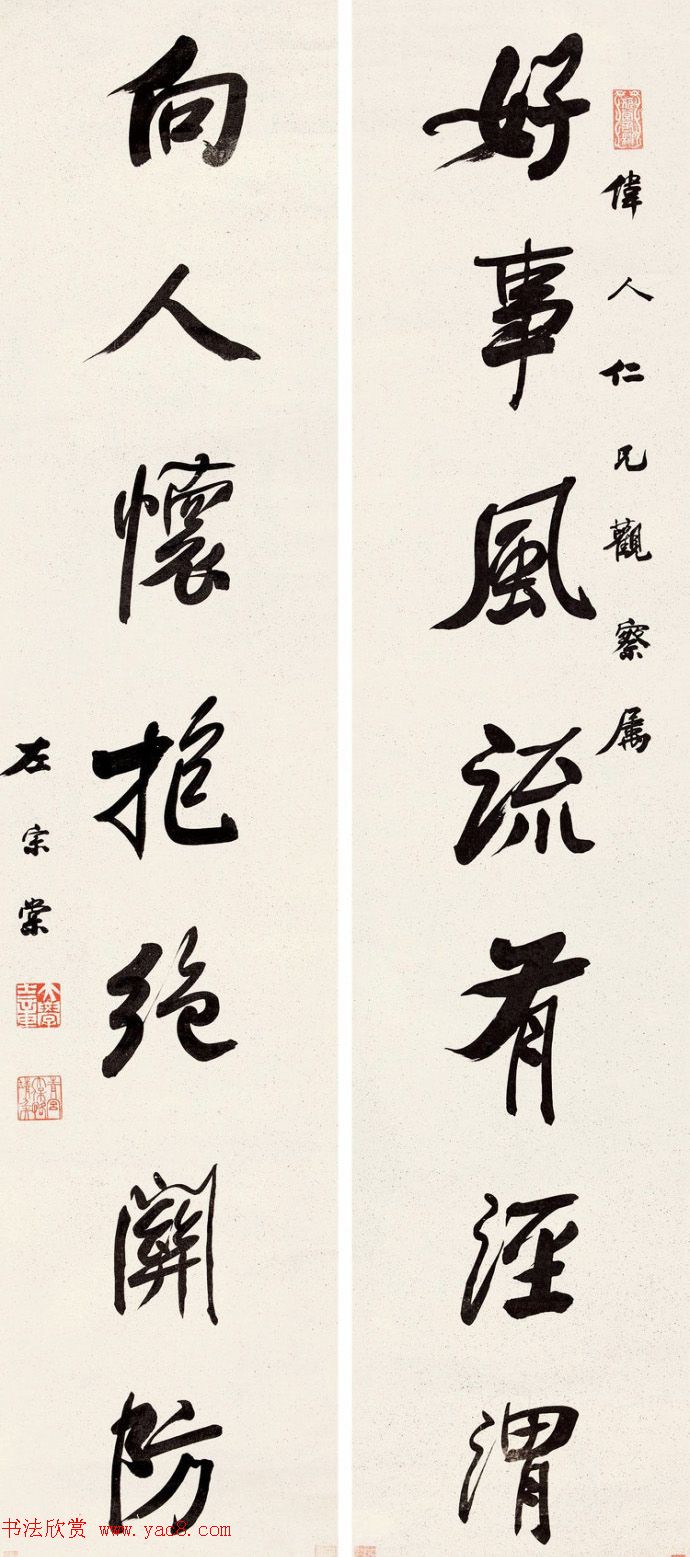 偉人仁兄觀察属
好事風流有涇渭
向人懷抱絶關防
左宗棠
大學士章
书法欣赏 www.yac8.com